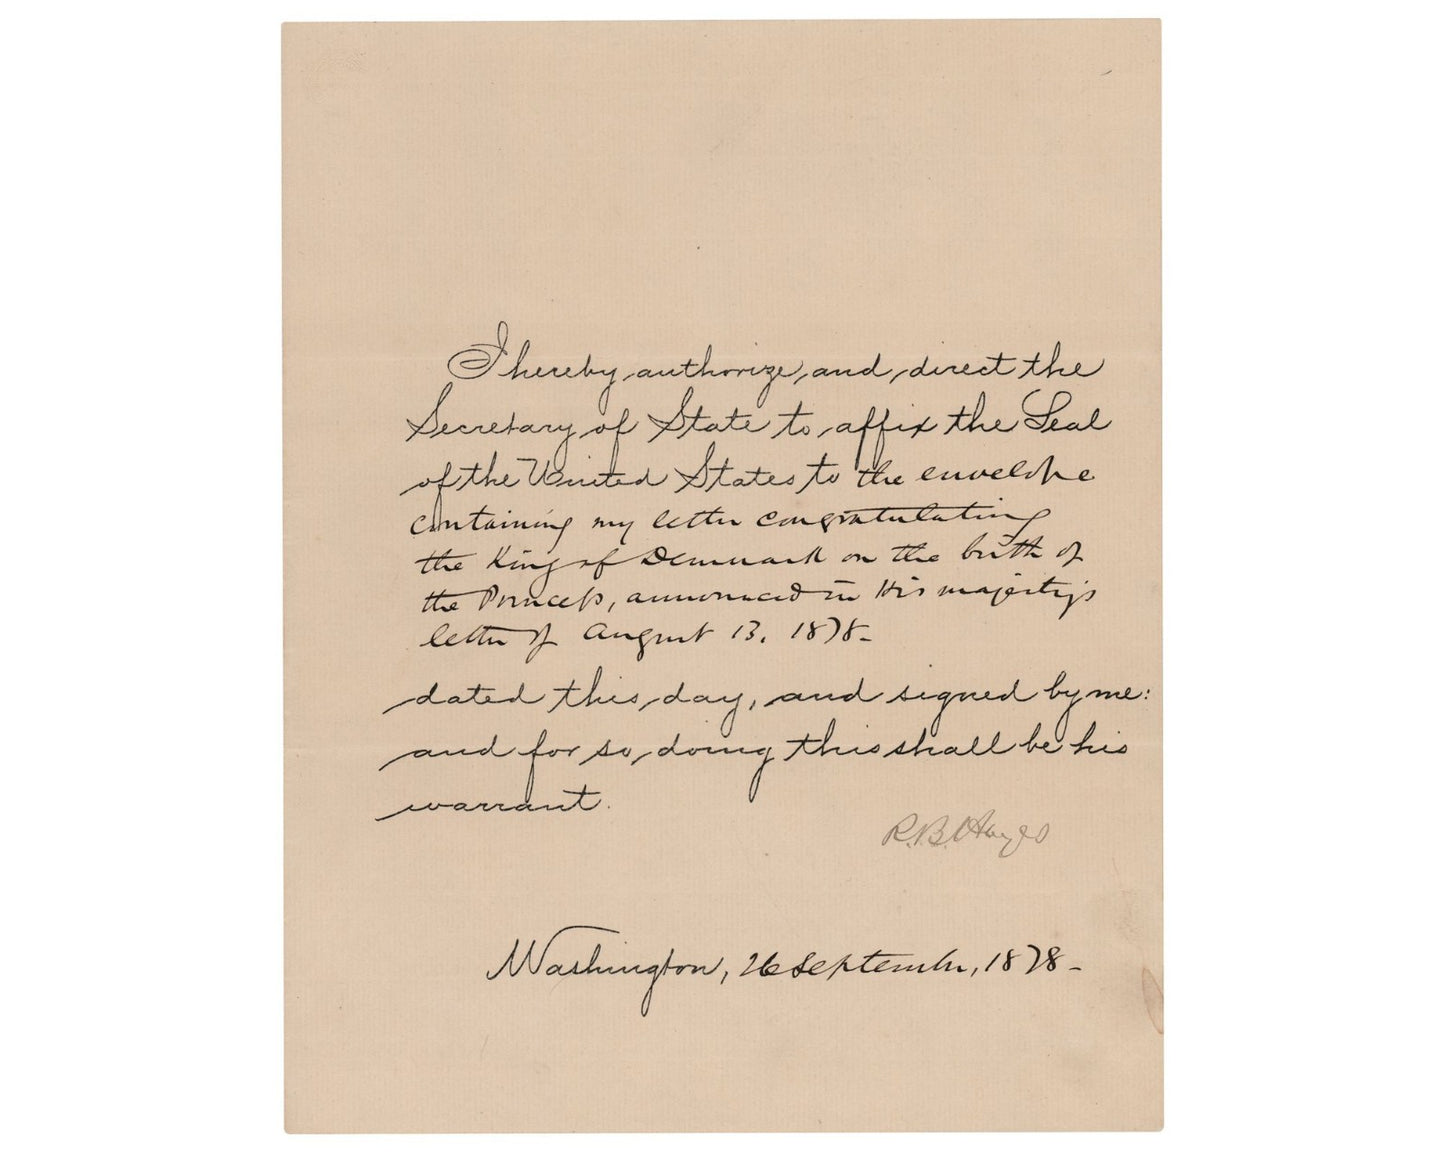 I hereby authorize and direct the
Secretary of State to affix the Seal
of the United States to the envelope
containing my letter congratulating
the King of Denmark on the birth of
the Princess, announced in His majesty's
letter of August 13, 1878-
dated this day, and signed by me:
and for so doing this shall be his
warrant.
R.B. Hayes
Washington, 26 September, 1878-